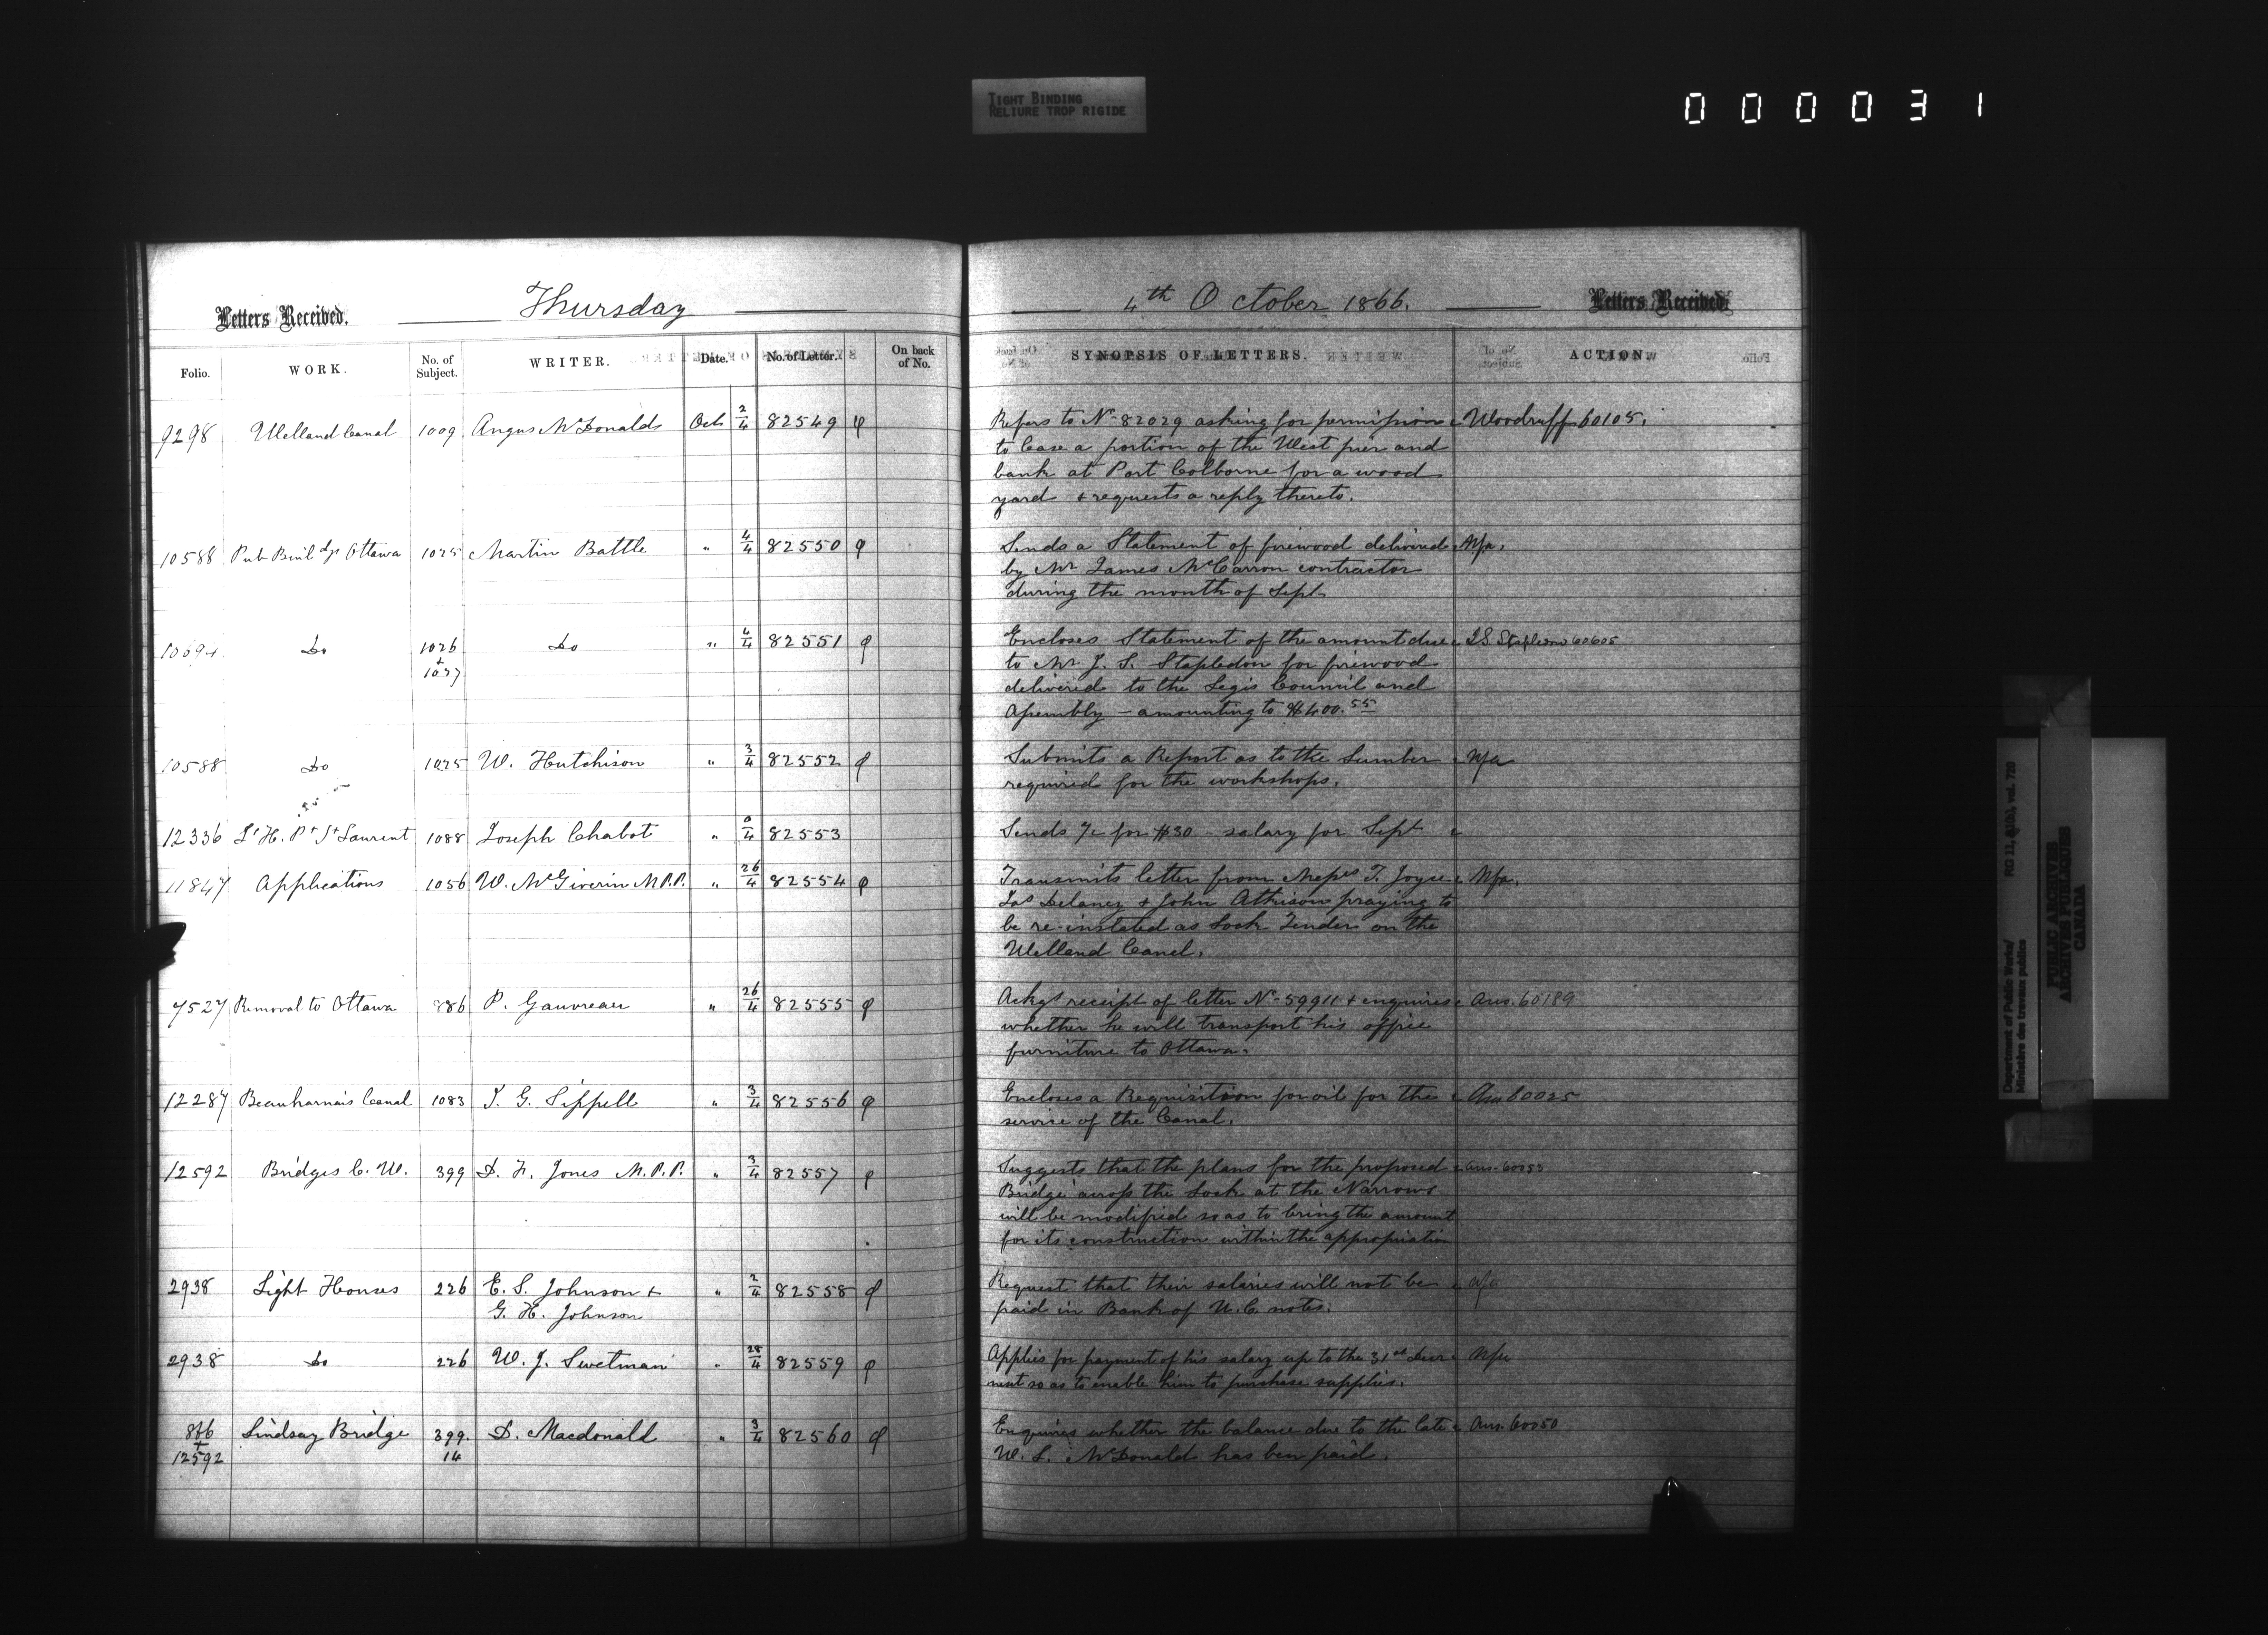 TIGHT BINDING
RELIURE TROP RIGIDE
000031
Letters Received. Thursday
Folio. WORK. No. of Subject. WRITER. Date. No. of Letter. On back of No.
9298 Welland Canal 1009 Angus McDonald Oct 2/4 82549
10588 Pub Buildgs Ottawa 1025 Martin Battle " 4/4 82550
10694 Do 1026 + 1027 Do " 4/4 82551
10588 Do 1025 W. Hutchison " 3/4 82552
12336 Lt H. Pt St Laurent 1088 Joseph Chabot " 82553
11847 Applications 1056 W. McGiverin M.P.P. " 26/4 82554
7527 Removal to Ottawa 886 P. Gauvreau " 26/4 82555
12287 Beauharnais Canal 1083 J. G. Sippell " 3/4 82556
12592 Bridges C. W. 399 D. F. Jones M.P.P. " 3/4 82557
2938 Light Houses 226 E. S. Johnson + " 2/4 82558
G. H. Johnson
2938 Do 226 W. J. Swetman " 28/4 82559
866 + 12592 Lindsay Bridge 399. 14 D. Macdonald " 3/4 82560
4th October 1866. Letters Received
SYNOPSIS OF LETTERS. ACTION.
Refers to No 82029 asking for permission Woodruff 60105.
to lease a portion of the West pier and
bank at Port Colborne for a wood
yard + requests a reply thereto.
Sends a Statement of firewood delivered Nfa.
by Mr James McCarron contractor
during the month of Sept
Encloses Statement of the amount due J.S. Stapledon 60605
to Mr J. S. Stapledon for firewood
delivered to the Legis Council and
Assembly – amounting to $400.55
Submits a Report as to the Lumber Nfa
required for the workshops.
Sends a/c for $30 – salary for Sept
Transmits letter from Messrs T. Joyce Nfa.
Jas Delaney + John Atkison praying to
be re-instated as Lock Tenders on the
Welland Canal.
Ackgs receipt of letter No 59911 + enquires Ans. 60189
whether he will transport his office
furniture to Ottawa.
Encloses a Requisition for oil for the Ans 60025
service of the Canal.
Suggests that the plans for the proposed Ans.
Bridge across the Lock at the Narrows
will be modified so as to bring the amount
for its construction within the appropriation
Request that their salaries will not be
paid in Bank of U.C. notes.
Applies for payment of his salary up to the 31st Decr Nfa
next so as to enable him to purchase supplies.
Enquires whether the balance due to the late Ans. 60050
W. S. McDonald has been paid.
Department of Public Works/
Ministère des travaux publics
RG 11, B1(b), vol. 720
PUBLIC ARCHIVES
ARCHIVES PUBLIQUES
CANADA